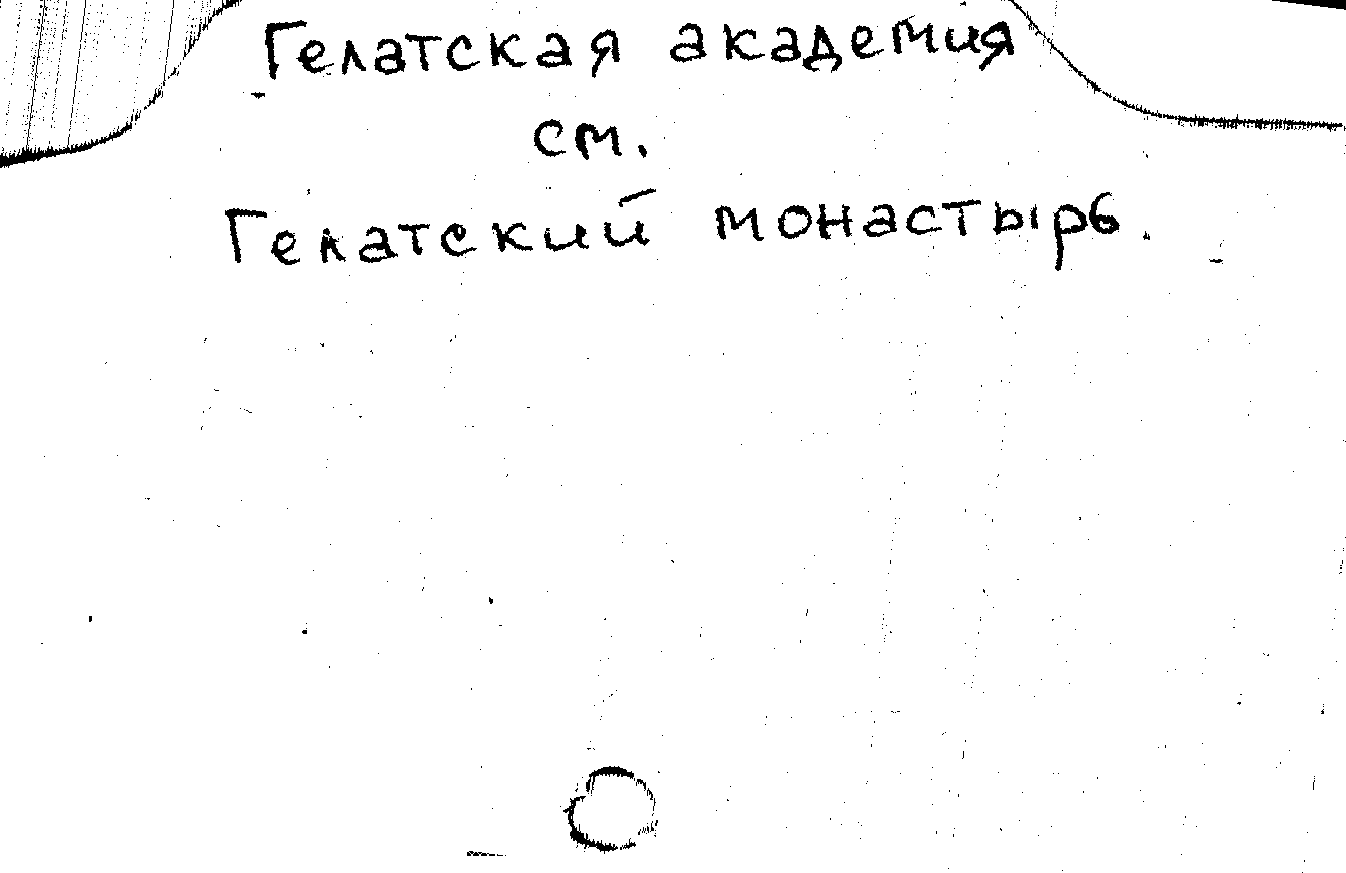 Гелатская академия
см.
Гелатский монастырь.